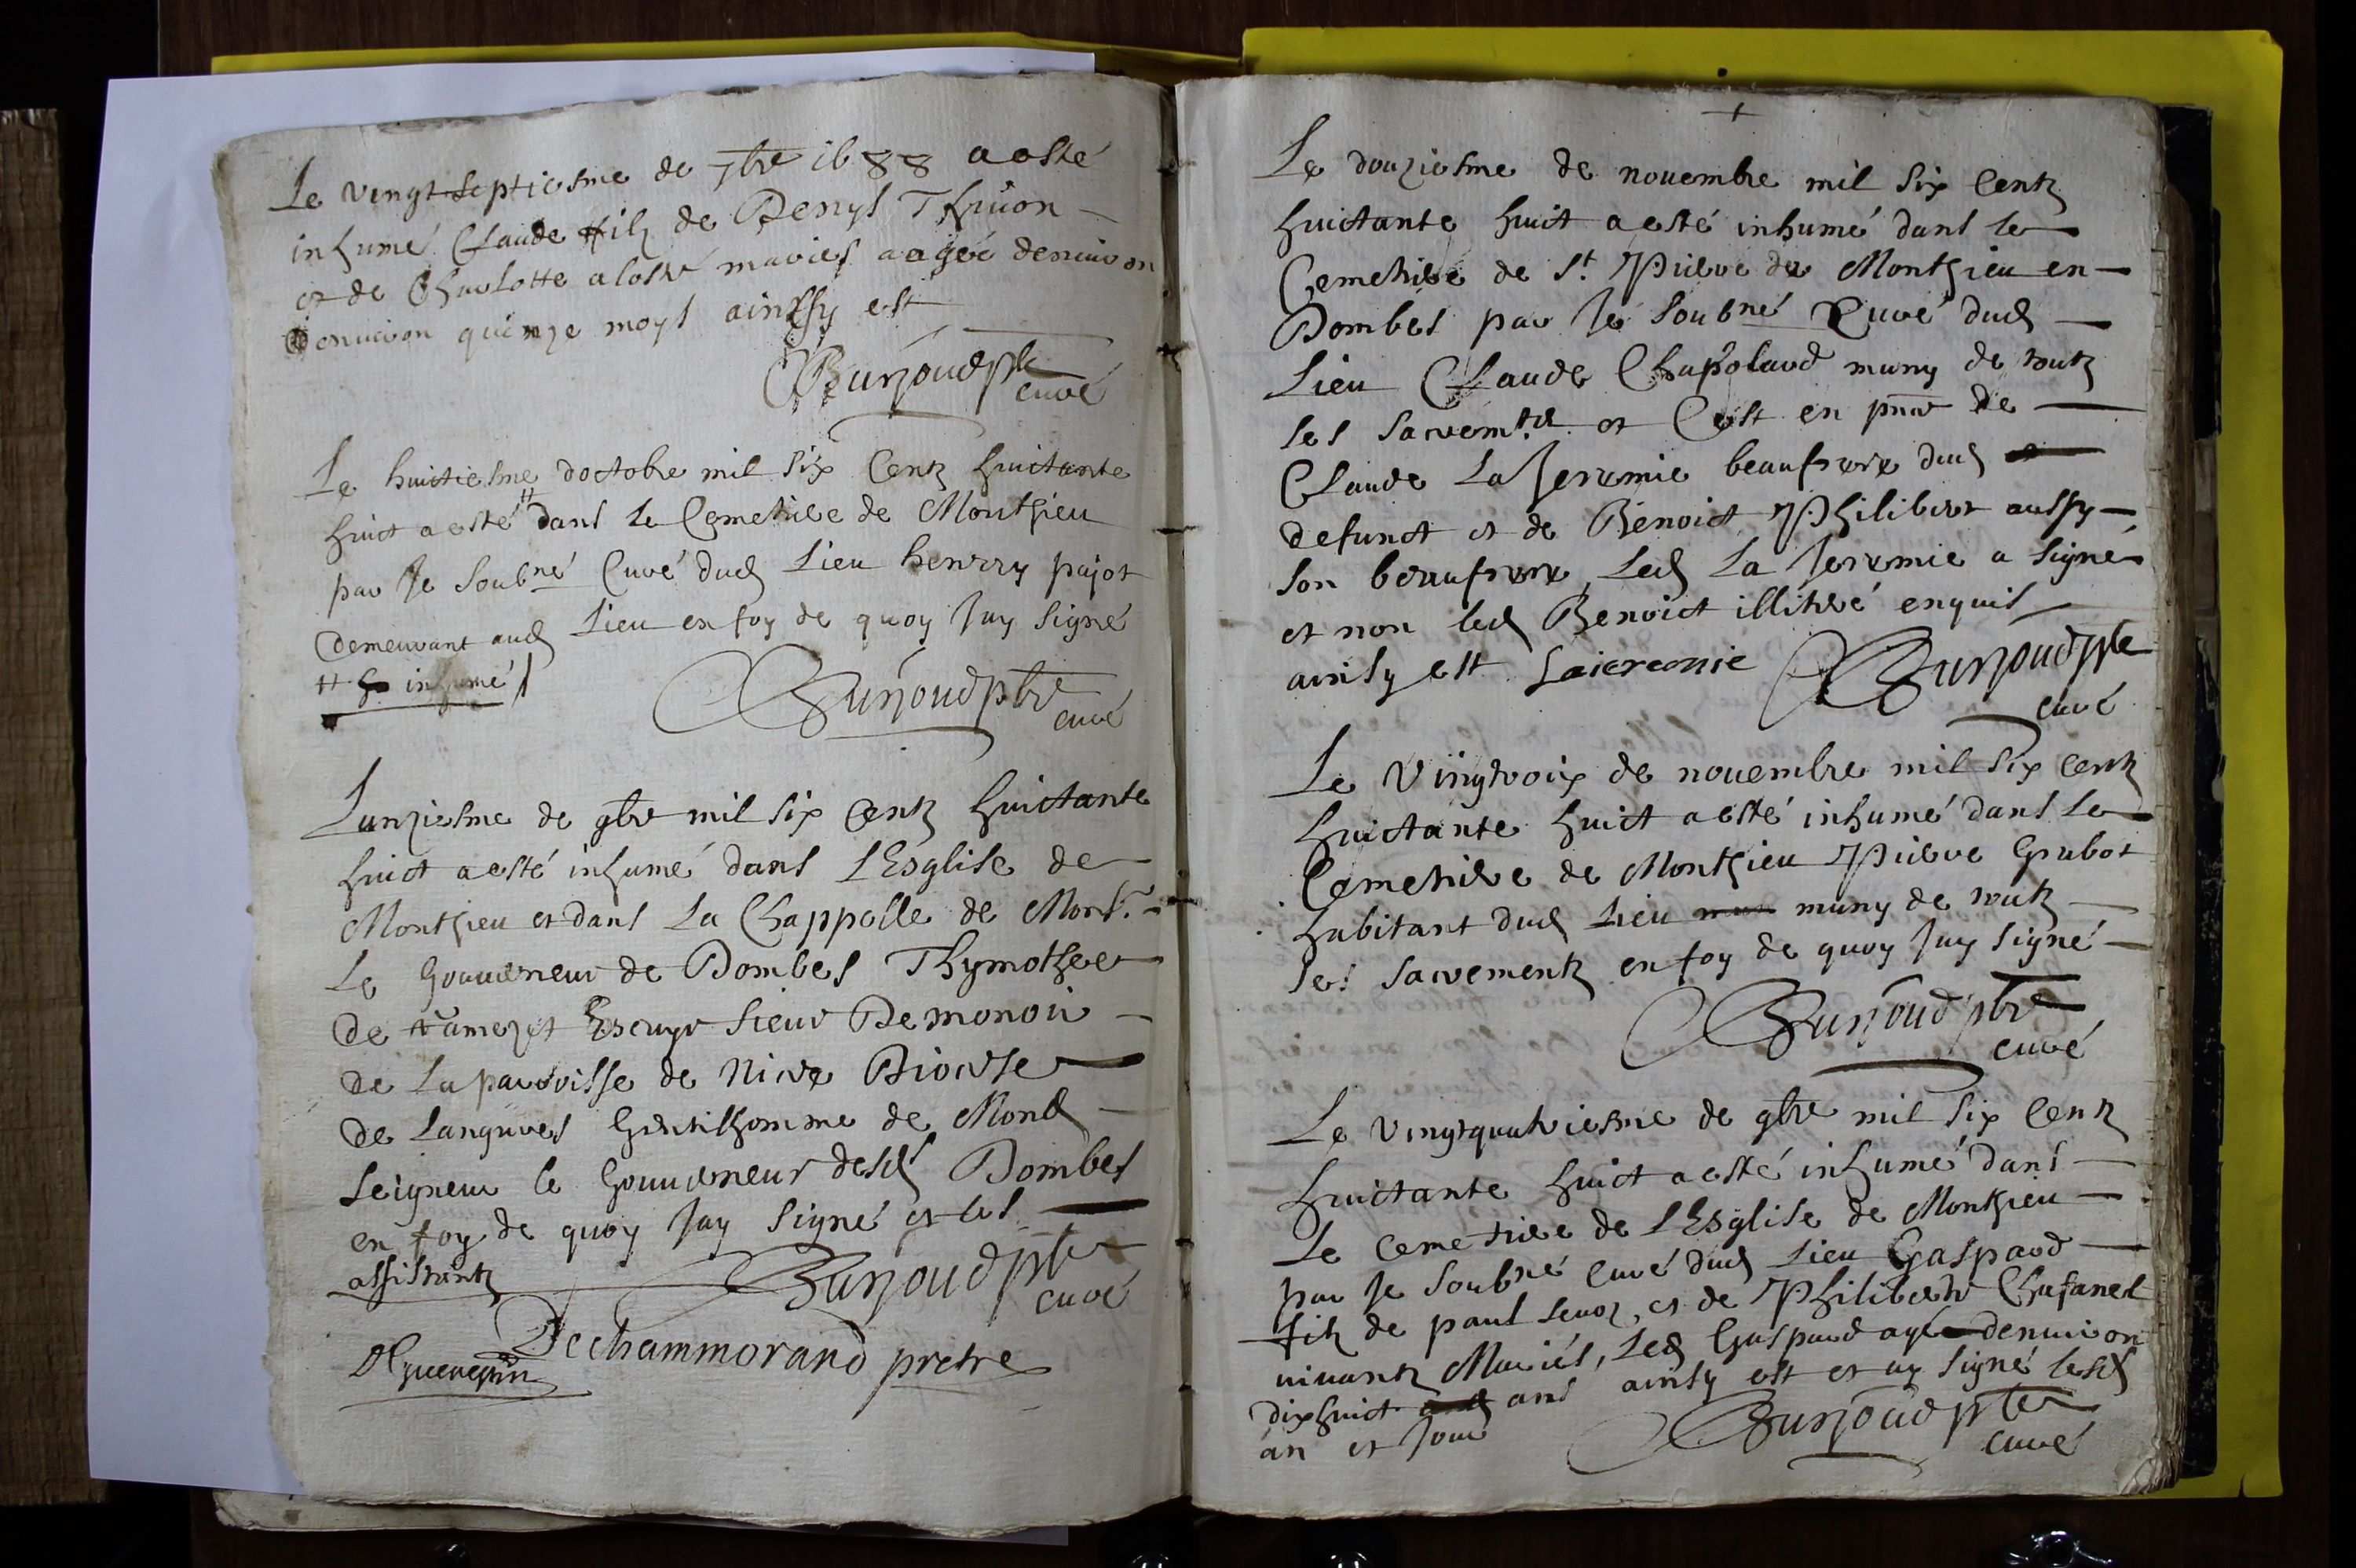 Le vingt septiesme de 7bre 1688 a esté
inhumé Claude filz de Denys Thivon
et de Charlotte aloste mariés aagée denuiron
denuiron quinze moys ainssy est
Burjoud pbre
curé
Le huitiesme doctobre mil six centz huictante
huict a esté # dans le Cemetiere de Monthieu
par Je soubné Curé dud lieu henrry pajot
demeurant aud lieu en foy de quoy Jay signé
# inhumé
Burjoud pbre
curé
Lunziesme de 9bre mil six centz huictante
huict a esté inhumé dans l'Esglise de
Monthieu et dans la Chappelle de Monsr
Le Gouuerneur de Dombes Thymothee
de ramezet Escuyr sieur De monoir
de la parroisse de nicre Diocese
de Langures Gentilhomme de Mond
seigneur le Gouuerneur desd Dombes
en foy de quoy Jay signé et les
assistantz
Burjoud pbre
curé
Dechammorand pretre
Le douziesme de nouembre mil six Centz
huictante huict a esté inhumé dans le
Cemetiere de St Pierre de Monthieu en
Dombes par Je soubné Curé dud
Lieu Claude Chapolard muny de toutz
les sacremts et Cest en pnce de
Claude La Jeremie beaufrere dud
defunct et de Benoict Philibert aussy
son beaufrere, Led La Jeremie a signé
et non led Benoict illitéré enquis
ainsy est Laieremie Burjoud pbre
curé
Le vingtroix de nouembre mil six centz
huictante huict a esté inhumé dans le
Cemetiere de Monthieu Pierre Grabot
habitant dud Lieu muny de toutz
les sacrementz en foy de quoy Jay signé
Burjoud pbre
curé
Le vingtquatriesme de 9bre mil six Centz
huictante huict a esté inhumé dans
Le cemetiere de L'Esglise de Monthieu
par Je soubné curé dud Lieu Gaspard
filz de paul seuoz, et de Philiberte Chafanel
uiuantz Mariés, Led Gaspard agé denuiron
dixhuict ans ainsy est et ay signé lesd
an et Jour
Burjoud pbre
curé